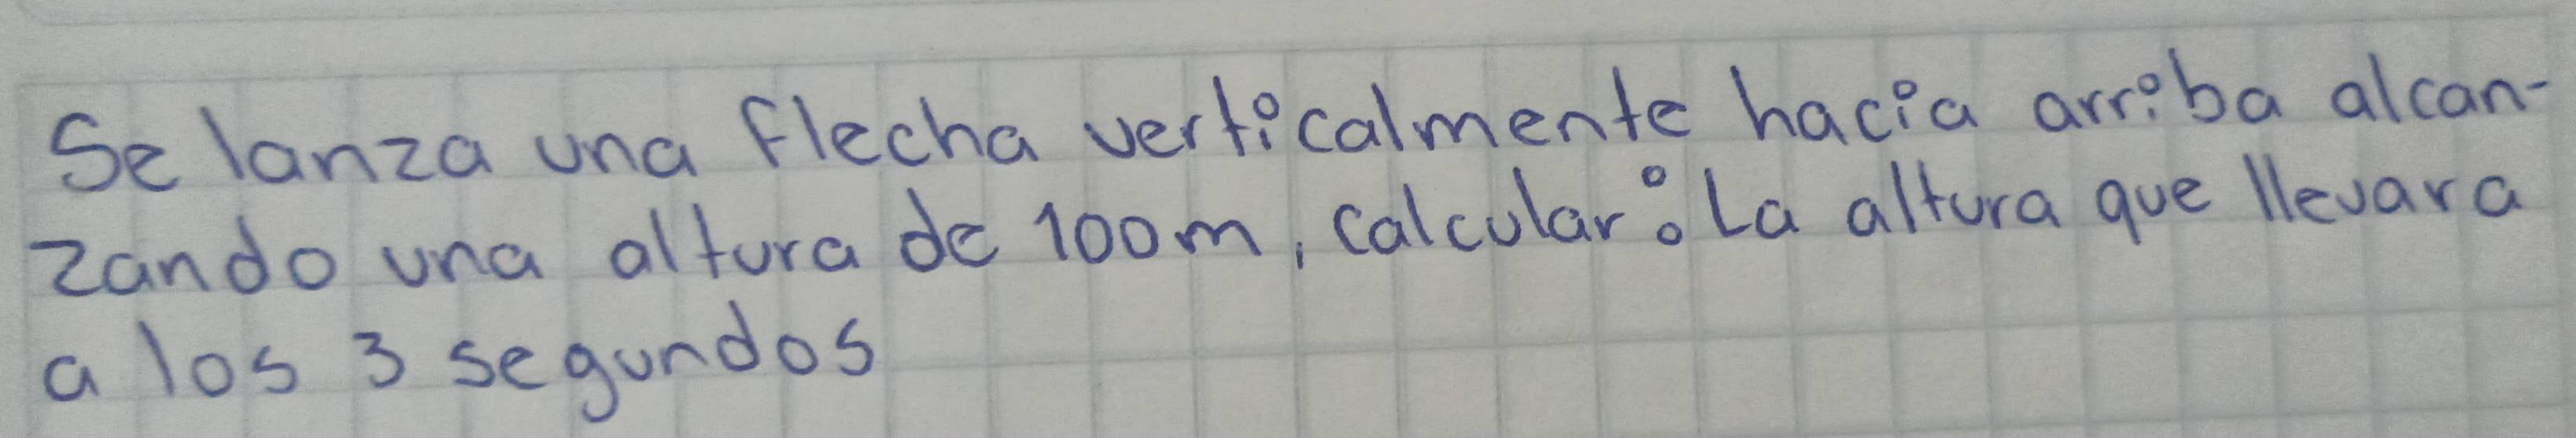 Se lanza una flecha verticalmente hacia arriba alcan-
zando una altura de 100m, calcular: La altura que llevara
a los 3 segundos